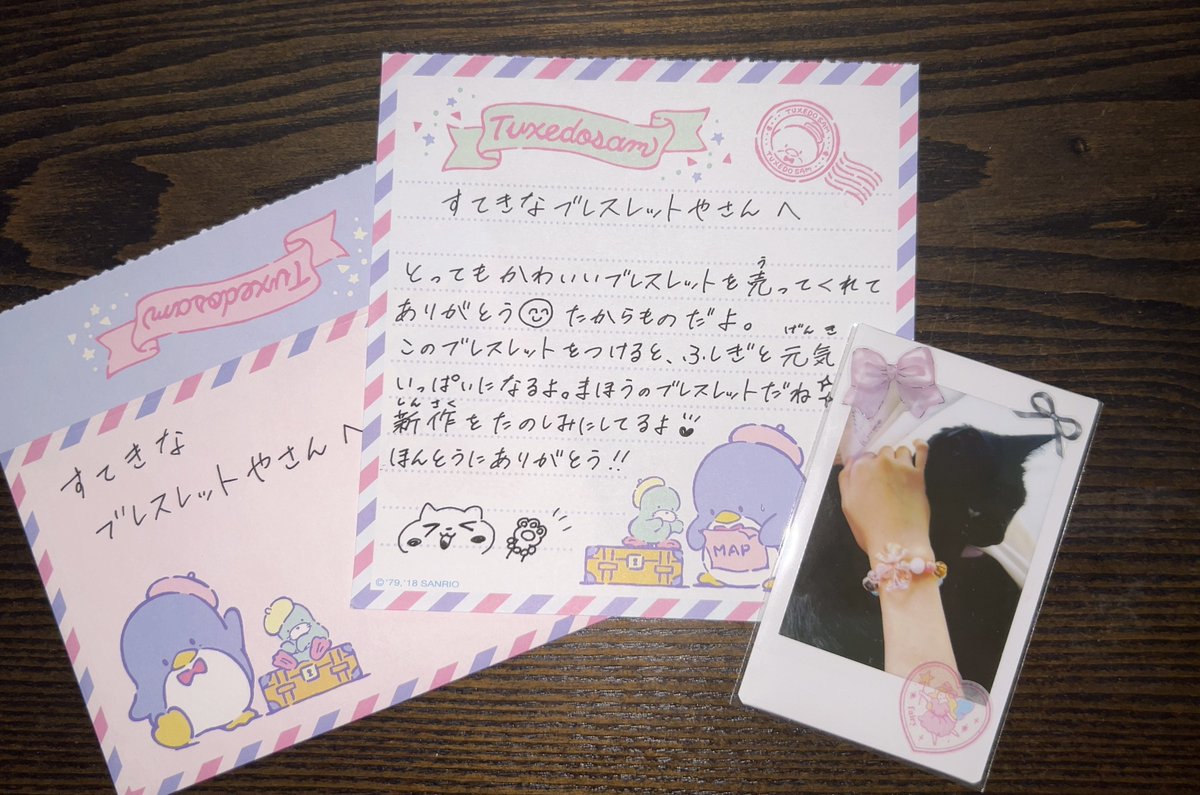 Tuxedosam
TUXEDO SAM
TUXEDO SAM
すてきなブレスレットやさんへ
とってもかわいいブレスレットを売ってくれて
う
ありがとう たからものだよ。
げんき
このブレスレットをつけると、ふしぎと元気
いっぱいになるよ。まほうのブレスレットだね☆
しんさく
新作をたのしみにしてるよ
ほんとうにありがとう!!
MAP
© '79, '18 SANRIO
Tuxedosam
すてきな
ブレスレットやさんへ
Fairy